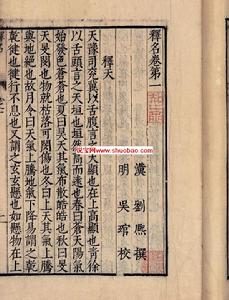 釋名卷第一
漢 劉熙 撰
明 吳琯 校
釋天
天豫司兗冀以舌腹言之天顯也在上高顯也青徐
以舌頭言之天坦也坦然高而遠也春曰蒼天陽氣
始發色蒼蒼也夏曰昊天其氣布散皓皓也秋曰旻
天旻閔也物就枯落可閔傷也冬曰上天其氣上騰
與地絕也故月令曰天氣上騰地氣下降易謂之乾
乾健也健行不息也又謂之玄玄懸也如懸物在上
www.shuobao.com